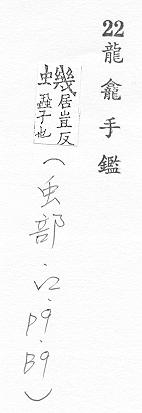 22龍龕手鑑
蟣居豈反
蝨子也
(虫部.v2.p9.B9)